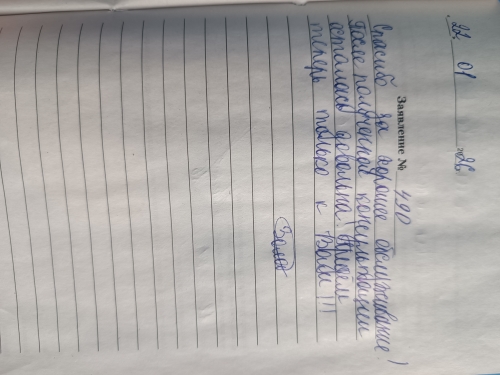 22 01 26
Заявление № 490
Спасибо за хорошее обслуживание!
После полученной консультации
осталась довольна! Придём
теперь только к Вам!!!